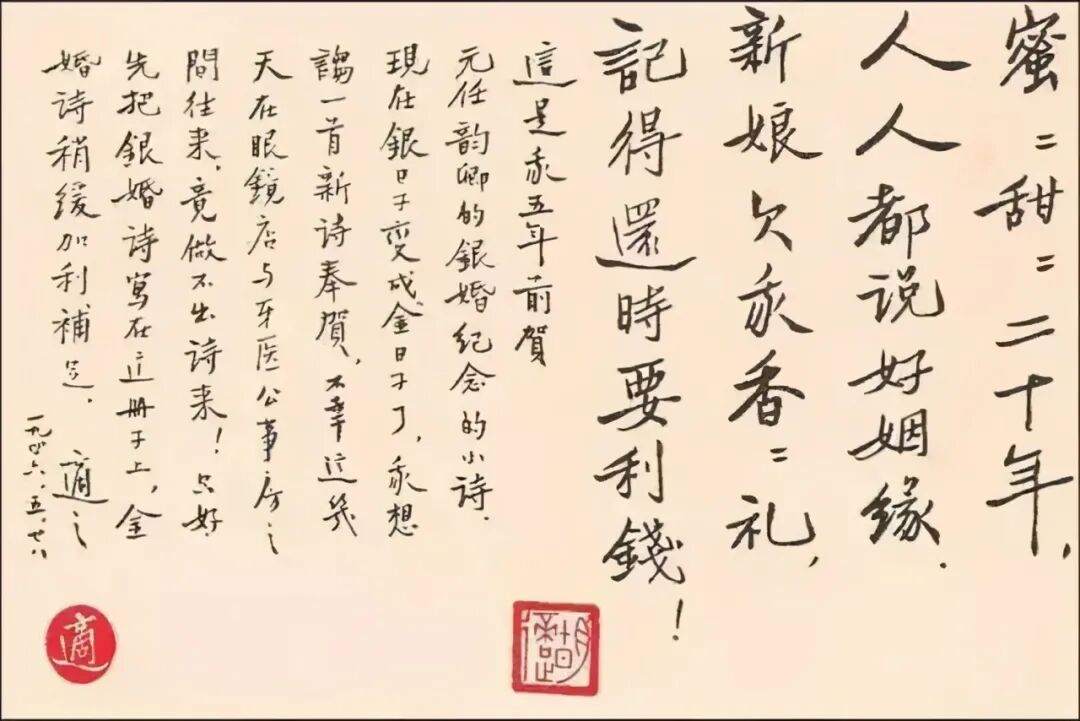 蜜〻甜〻二十年,
人人都说好姻缘.
新娘欠我香〻礼,
記得還時要利錢!
這是我五年前賀
元任韵卿的銀婚纪念的小诗.
現在銀日子变成金日子了,我想
謅一首新诗奉賀,不幸这幾
天在眼鏡店与牙医公事房之
間往来,竟做不出诗来!只好
先把銀婚诗寫在这册子上,金
婚诗稍缓加利補足.
適之
一九四六.五.廿八
胡適
適